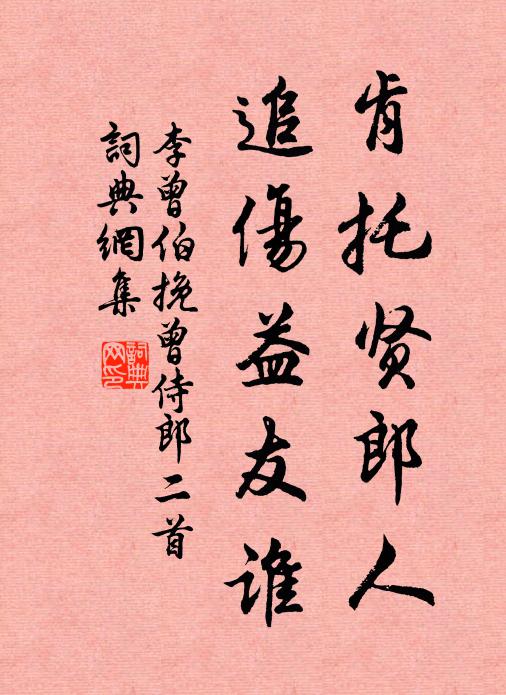 肯托贤郎人
追傷益友谁
李曾伯挽曾侍郎二首
詞典網集
詞典网印